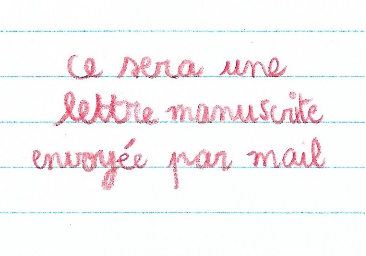 ce sera une
lettre manuscrite
envoyée par mail